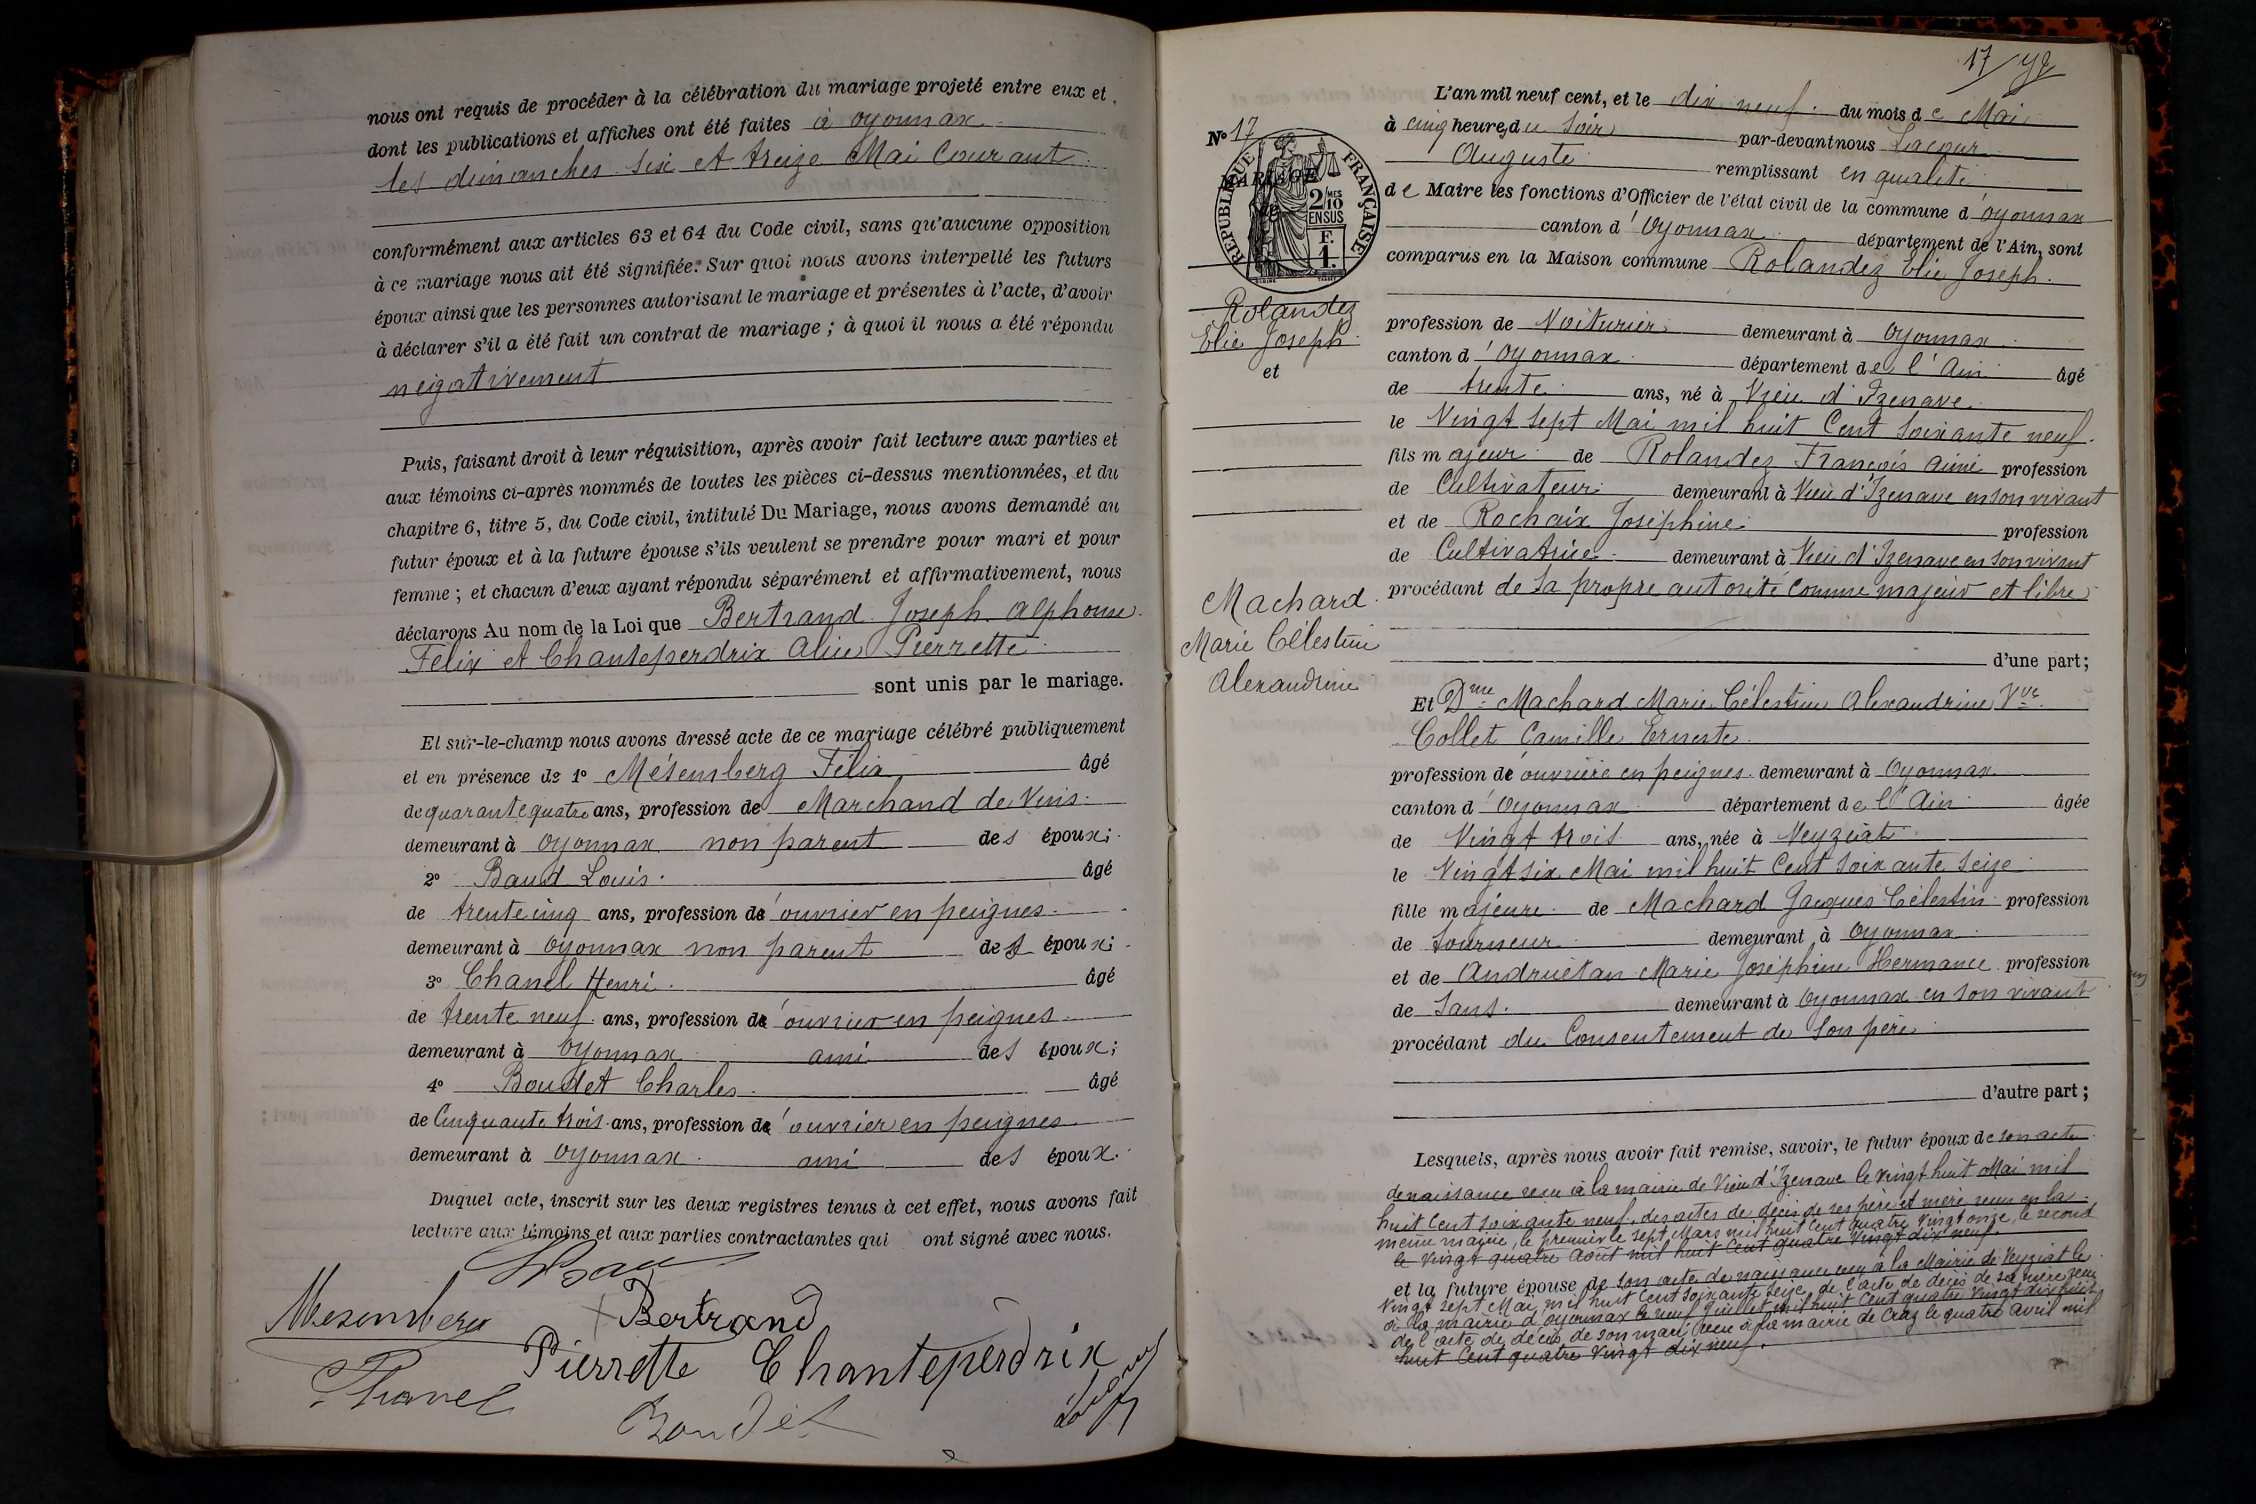 nous ont requis de procéder à la célébration du mariage projeté entre eux et
dont les publications et affiches ont été faites à Oyonnax
les dimanches six et treize Mai courant
conformément aux articles 63 et 64 du Code civil, sans qu'aucune opposition
à ce mariage nous ait été signifiée. Sur quoi nous avons interpellé les futurs
époux ainsi que les personnes autorisant le mariage et présentes à l'acte, d'avoir
à déclarer s'il a été fait un contrat de mariage ; à quoi il nous a été répondu
négativement
Puis, faisant droit à leur réquisition, après avoir fait lecture aux parties et
aux témoins ci-après nommés de toutes les pièces ci-dessus mentionnées, et du
chapitre 6, titre 5, du Code civil, intitulé Du Mariage, nous avons demandé au
futur époux et à la future épouse s'ils veulent se prendre pour mari et pour
femme ; et chacun d'eux ayant répondu séparément et affirmativement, nous
déclarons Au nom de la Loi que Bertrand Joseph Alphonse
Félix et Chanteperdrix Alice Pierrette
sont unis par le mariage.
Et sur-le-champ nous avons dressé acte de ce mariage célébré publiquement
et en présence de 1° Mésemberg Félix âgé
de quarante quatre ans, profession de Marchand de Vins
demeurant à Oyonnax non parent des époux;
2° Baud Louis. âgé
de trente cinq ans, profession d'ouvrier en peignes
demeurant à Oyonnax non parent des époux;
3° Chanel Henri. âgé
de trente neuf ans, profession d'ouvrier en peignes
demeurant à Oyonnax ami des époux;
4° Boudet Charles. âgé
de Cinquante trois ans, profession d'ouvrier en peignes
demeurant à Oyonnax ami des époux.
Duquel acte, inscrit sur les deux registres tenus à cet effet, nous avons fait
lecture aux témoins et aux parties contractantes qui ont signé avec nous.
Mesemberg
Bertrand
Pierrette Chanteperdrix
Chanel
Boudet
17
N° 17
MARIAGE
de
RÉPUBLIQUE FRANÇAISE
2/10 MES
EN SUS
F.
1.
Rolandez
Elie Joseph
et
Machard
Marie Célestine
Alexandrine
L'an mil neuf cent, et le dix neuf du mois de Mai
à cinq heures du soir par-devant nous Lacour
Auguste remplissant en qualité
de Maire les fonctions d'Officier de l'état civil de la commune d'Oyonnax
canton d'Oyonnax département de l'Ain, sont
comparus en la Maison commune Rolandez Elie Joseph.
profession de Voiturier demeurant à Oyonnax
canton d'Oyonnax département de l'Ain âgé
de trente ans, né à Vieu d'Izenave
le Vingt sept Mai mil huit Cent soixante neuf.
fils majeur de Rolandez François Aimé profession
de Cultivateur demeurant à Vieu d'Izenave en son vivant
et de Rochaix Joséphine profession
de Cultivatrice demeurant à Vieu d'Izenave en son vivant
procédant de sa propre autorité comme majeur et libre
d'une part;
Et Dme Machard Marie Célestine Alexandrine Vve
Collet Camille Ernest
profession d'ouvrière en peignes demeurant à Oyonnax
canton d'Oyonnax département de l'Ain âgée
de Vingt trois ans, née à Veyziat
le Vingt six Mai mil huit Cent soixante seize
fille majeure de Machard Jacques Célestin profession
de tourneur demeurant à Oyonnax
et de Andruétan Marie Joséphine Hermance profession
de Sans. demeurant à Oyonnax en son vivant
procédant du Consentement de son père
d'autre part;
Lesquels, après nous avoir fait remise, savoir, le futur époux de son acte
de naissance reçu à la mairie de Vieu d'Izenave le vingt huit Mai mil
huit Cent soixante neuf, des actes de décès de ses père et mère reçus en la
même mairie, le premier le sept Mars mil huit Cent quatre vingt onze, le second
le vingt quatre Août mil huit Cent quatre vingt dix neuf.
et la future épouse de son acte de naissance reçu à la Mairie de Veyziat le
vingt sept Mai mil huit Cent soixante seize, de l'acte de décès de sa mère reçu
à la mairie d'Oyonnax le neuf Juillet mil huit Cent quatre vingt dix huit
de l'acte de décès de son mari reçu à la mairie de Craz le quatre avril mil
huit Cent quatre vingt dix neuf.